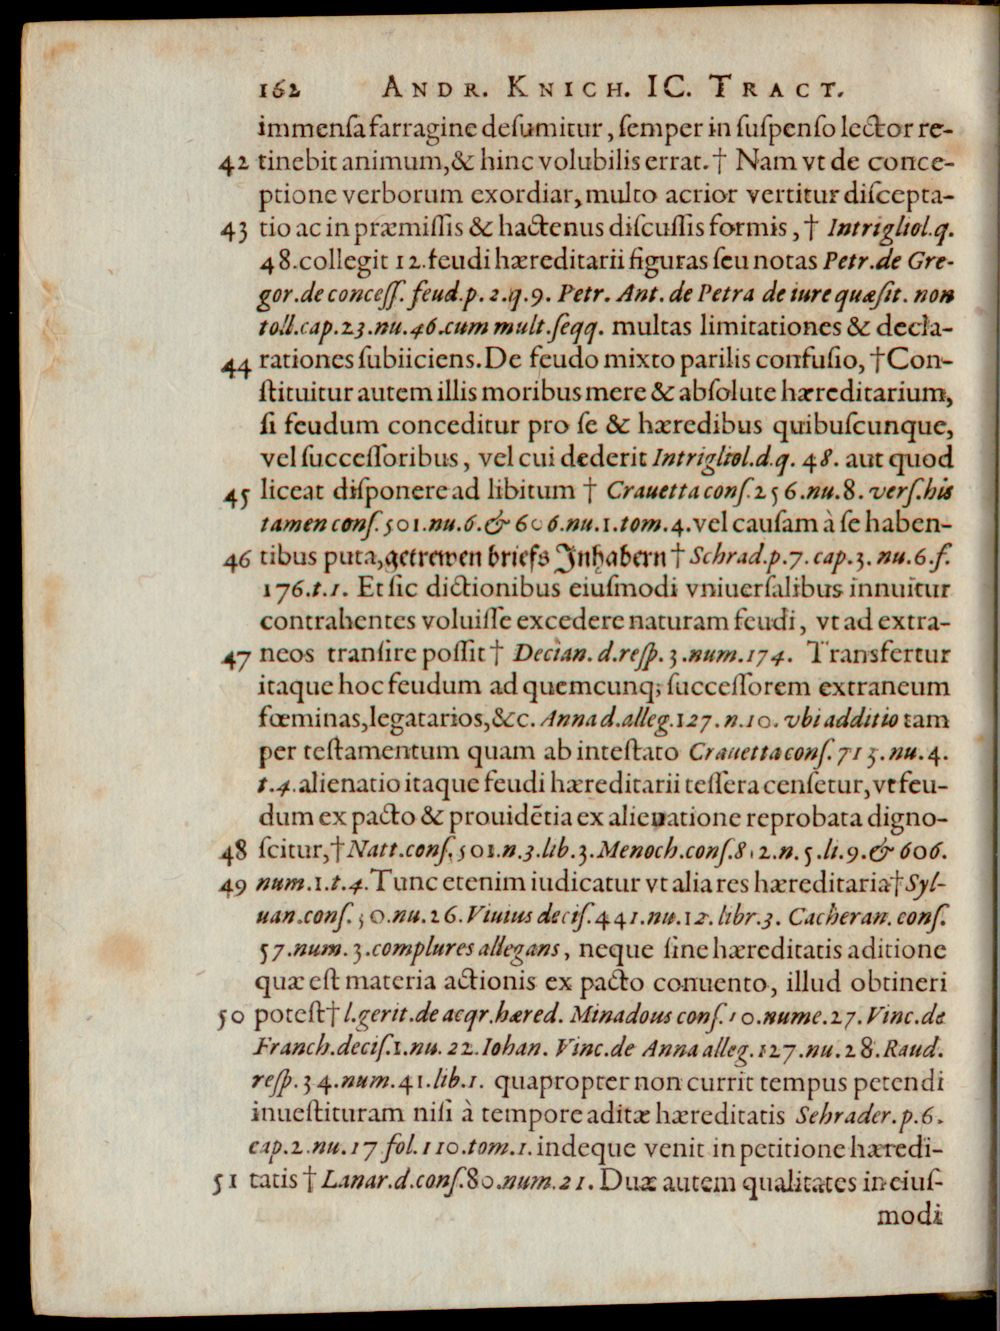 162 ANDR. KNICH. IC. TRACT.
immensa farragine desumitur, semper in suspenso lector re-
42 tinebit animum, & hinc volubilis errat. † Nam vt de conce-
ptione verborum exordiar, multo acrior vertitur discepta-
43 tio ac in præmissis & hactenus discussis formis, † Intrigliol. q.
48. collegit 12. feudi hæreditarii figuras seu notas Petr. de Gre-
gor. de concess. feud. p. 2. q. 9. Petr. Ant. de Petra de iure quæsit. non
toll. cap. 23. nu. 46. cum mult. seqq. multas limitationes & decla-
44 rationes subiiciens. De feudo mixto parilis confusio, † Con-
stituitur autem illis moribus mere & absolute hæreditarium,
si feudum conceditur pro se & hæredibus quibuscunque,
vel successoribus, vel cui dederit Intrigliol. d. q. 48. aut quod
45 liceat disponere ad libitum † Crauetta cons. 256. nu. 8. vers. his
tamen cons. 501. nu. 6. & 606. nu. 1. tom. 4. vel causam à se haben-
46 tibus puta, getrewen briefs Inhabern † Schrad. p. 7. cap. 3. nu. 6. f.
176. t. 1. Et sic dictionibus eiusmodi vniuersalibus innuitur
contrahentes voluisse excedere naturam feudi, vt ad extra-
47 neos transire possit † Decian. d. resp. 3. num. 174. Transfertur
itaque hoc feudum ad quemcunq; successorem extraneum
fœminas, legatarios, &c. Anna d. alleg. 127. n. 10. vbi additio tam
per testamentum quam ab intestato Crauetta cons. 713. nu. 4.
t. 4. alienatio itaque feudi hæreditarii tessera censetur, vt feu-
dum ex pacto & prouidẽtia ex alienatione reprobata digno-
48 scitur, † Natt. cons. 501. n. 3. lib. 3. Menoch. cons. 812. n. 5. li. 9. & 606.
49 num. 1. t. 4. Tunc etenim iudicatur vt alia res hæreditaria † Syl-
uan. cons. 30. nu. 26. Viuius decis. 441. nu. 12. libr. 3. Cacheran. cons.
57. num. 3. complures allegans, neque sine hæreditatis aditione
quæ est materia actionis ex pacto conuento, illud obtineri
50 potest † l. gerit. de acqr. hæred. Minadous cons. 10. nume. 27. Vinc. de
Franch. decis. 1. nu. 22. Iohan. Vinc. de Anna alleg. 127. nu. 28. Raud.
resp. 34. num. 41. lib. 1. quapropter non currit tempus petendi
inuestituram nisi à tempore aditæ hæreditatis Sehrader. p. 6.
cap. 2. nu. 17 fol. 110. tom. 1. indeque venit in petitione hæredi-
51 tatis † Lanar. d. cons. 80. num. 21. Duæ autem qualitates in eius-
modi